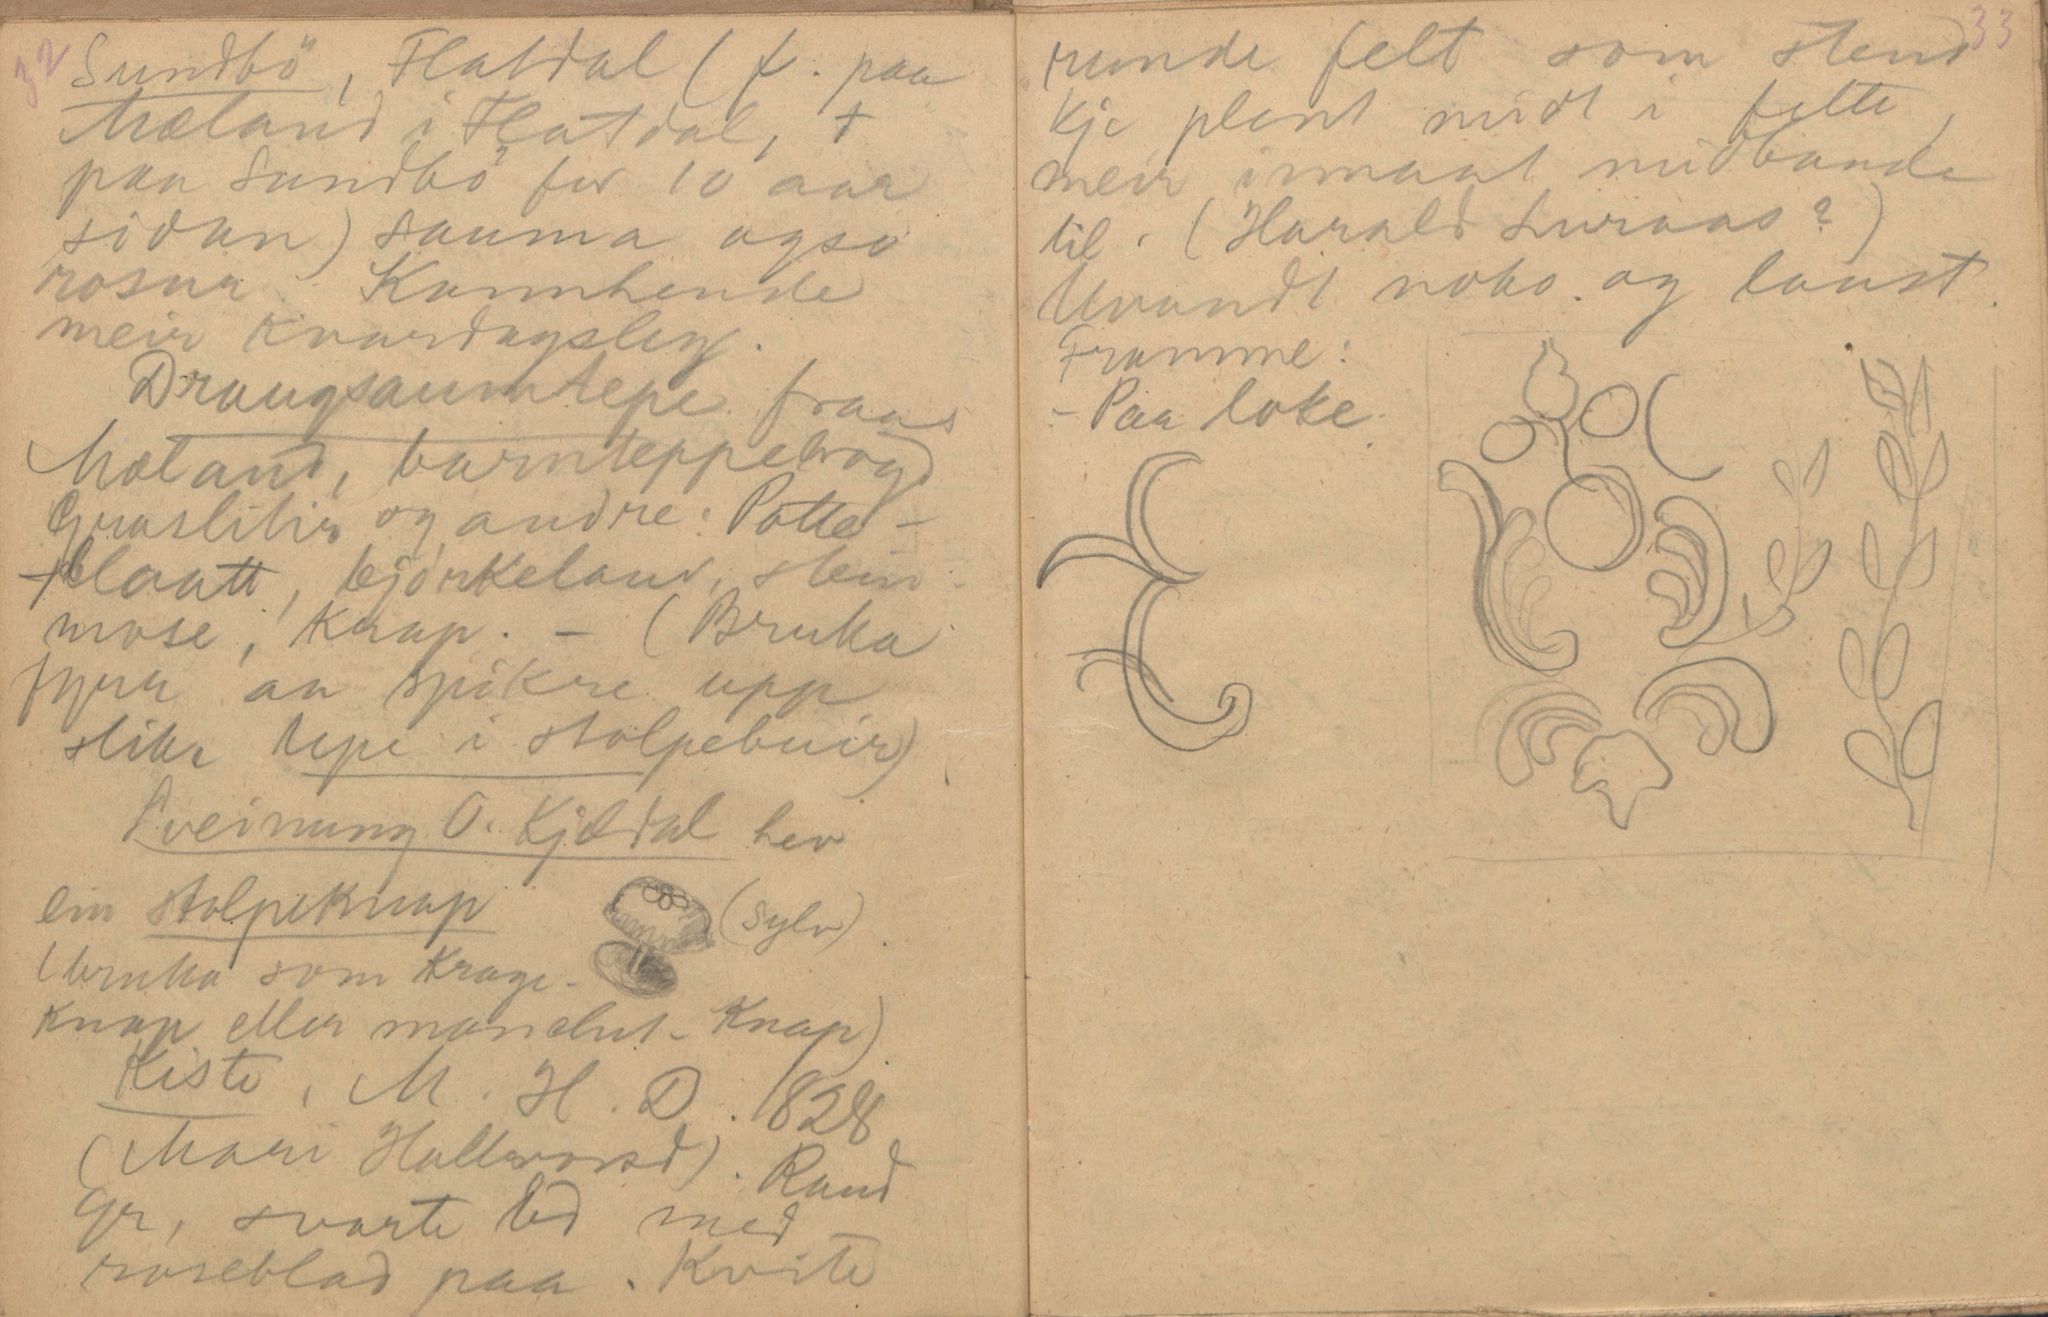 32
Sundbö, Flatdal (f. paa
Mæland i Flatdal, †
paa Sundbö for 10 aar
sidan) sauma ogso
rosur. Kannhende
meir kvardagsleg.
Draugsaumtepe fraa
Mæland, barnteppebragd
Graslitir og andre: Potte-
blaatt, bjørkelauv, stein-
mose, Knap. - (Bruka
fyrr aa spikre upp
slike tepe i stolpebuir)
Sveinung O. Kjældal hev
ein stolpeknap
(sylv).
(bruka som Krage-
Knap eller manchet-Knap)
Kiste, M. H. D. 1828
(Mari Hallvorsd). Raud
gr, svarte bd med
roseblad paa. Kvite
33
runde felt som stend
kje plent midt i felte,
meir inmaat midbande
til. (Harald Luraas?)
Uvandt noko og laust.
Framme:
- Paa loke.